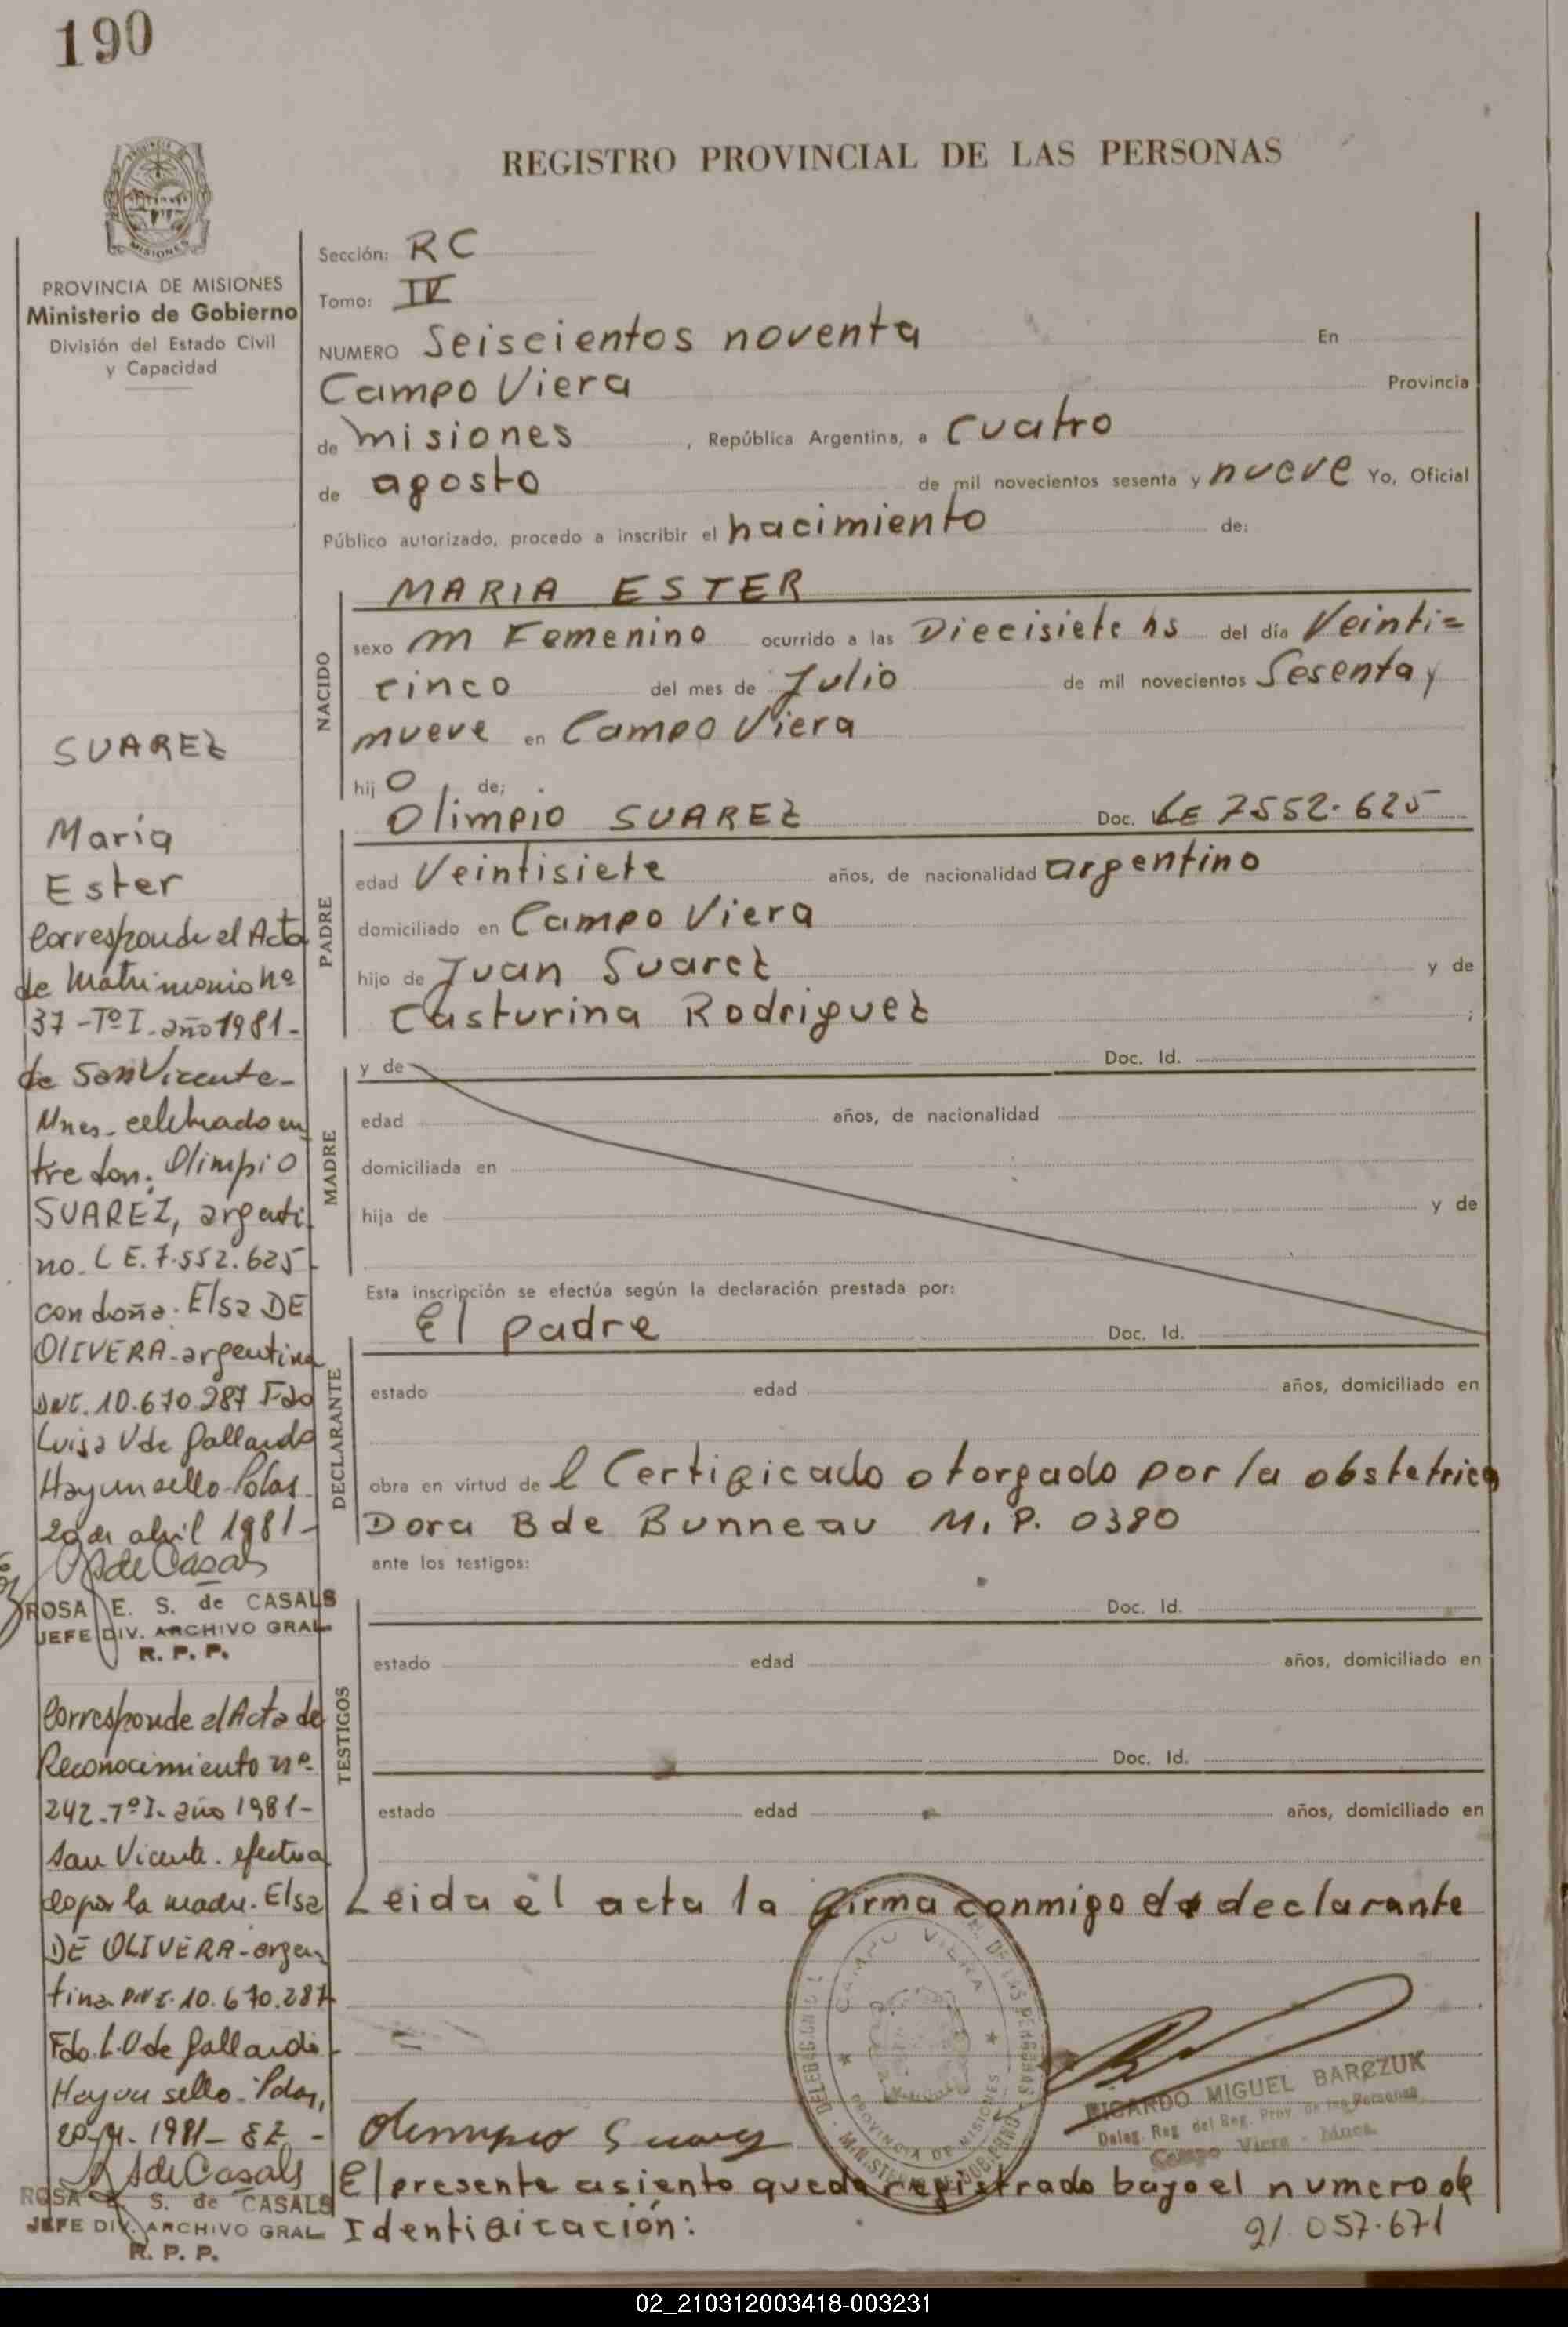 190
REGISTRO PROVINCIAL DE LAS PERSONAS
MISIONES
PROVINCIA DE MISIONES
Ministerio de Gobierno
División del Estado Civil
y Capacidad
Sección: RC
Tomo: IV
NUMERO Seiscientos noventa En
Campo Viera Provincia
de misiones, República Argentina, a cuatro
de agosto de mil novecientos sesenta y nueve Yo, Oficial
Público autorizado, procedo a inscribir el nacimiento de:
NACIDO
MARIA ESTER
sexo m Femenino ocurrido a las Diecisiete hs del día Veinti=
cinco del mes de Julio de mil novecientos Sesenta y
nueve en Campo Viera
hij o de;
PADRE
Olimpio SUAREZ Doc. LE 7552.625
edad Veintisiete años, de nacionalidad argentino
domiciliado en Campo Viera
hijo de Juan Suarez y de
Casturina Rodriguez ;
MADRE
y de Doc. Id.
edad años, de nacionalidad
domiciliada en
hija de y de
Esta inscripción se efectúa según la declaración prestada por:
DECLARANTE
El padre Doc. Id.
estado edad años, domiciliado en
obra en virtud de l Certificado otorgado por la obstetrica
Dora B de Bunneau M.P. 0380
ante los testigos:
TESTIGOS
Doc. Id.
estado edad años, domiciliado en
Doc. Id.
estado edad años, domiciliado en
Leida el acta la firma conmigo el declarante
Olimpio Suarez
CAMPO VIERA
PROVINCIA DE MISIONES
RICARDO MIGUEL BARCZUK
Deleg. Reg. del Reg. Prov. de las Personas
Campo Viera - Mnes.
El presente asiento queda registrado bajo el numero de
Identificación:
21.057.671
SUAREZ
María
Ester
Corresponde el Acta
de Matrimonio Nº
37 - Tº I - año 1981 -
de San Vicente -
Mnes - celebrado en
tre don: Olimpio
SUAREZ, argenti
no. L E. 7.552.625
con doña: Elsa DE
OLIVERA - argentina
DNI. 10.670.287 Fdo
Luisa V de Gallardo
Hay un sello - Pdas.
20 de abril 1981 -
R S de Casals
ROSA E. S. de CASALS
JEFE DIV. ARCHIVO GRAL.
R. P. P.
Corresponde el Acta de
Reconocimiento nº
242 - Tº I - año 1981 -
San Vicente. efectua
do por la madre. Elsa
DE OLIVERA - argen
tina DNI. 10.670.287
Fdo. L. V de Gallardo
Hay un sello - Pdas,
1981
de Casals
ROSA E. S. de CASALS
JEFE DIV. ARCHIVO GRAL
R. P. P.
02_210312003418-003231